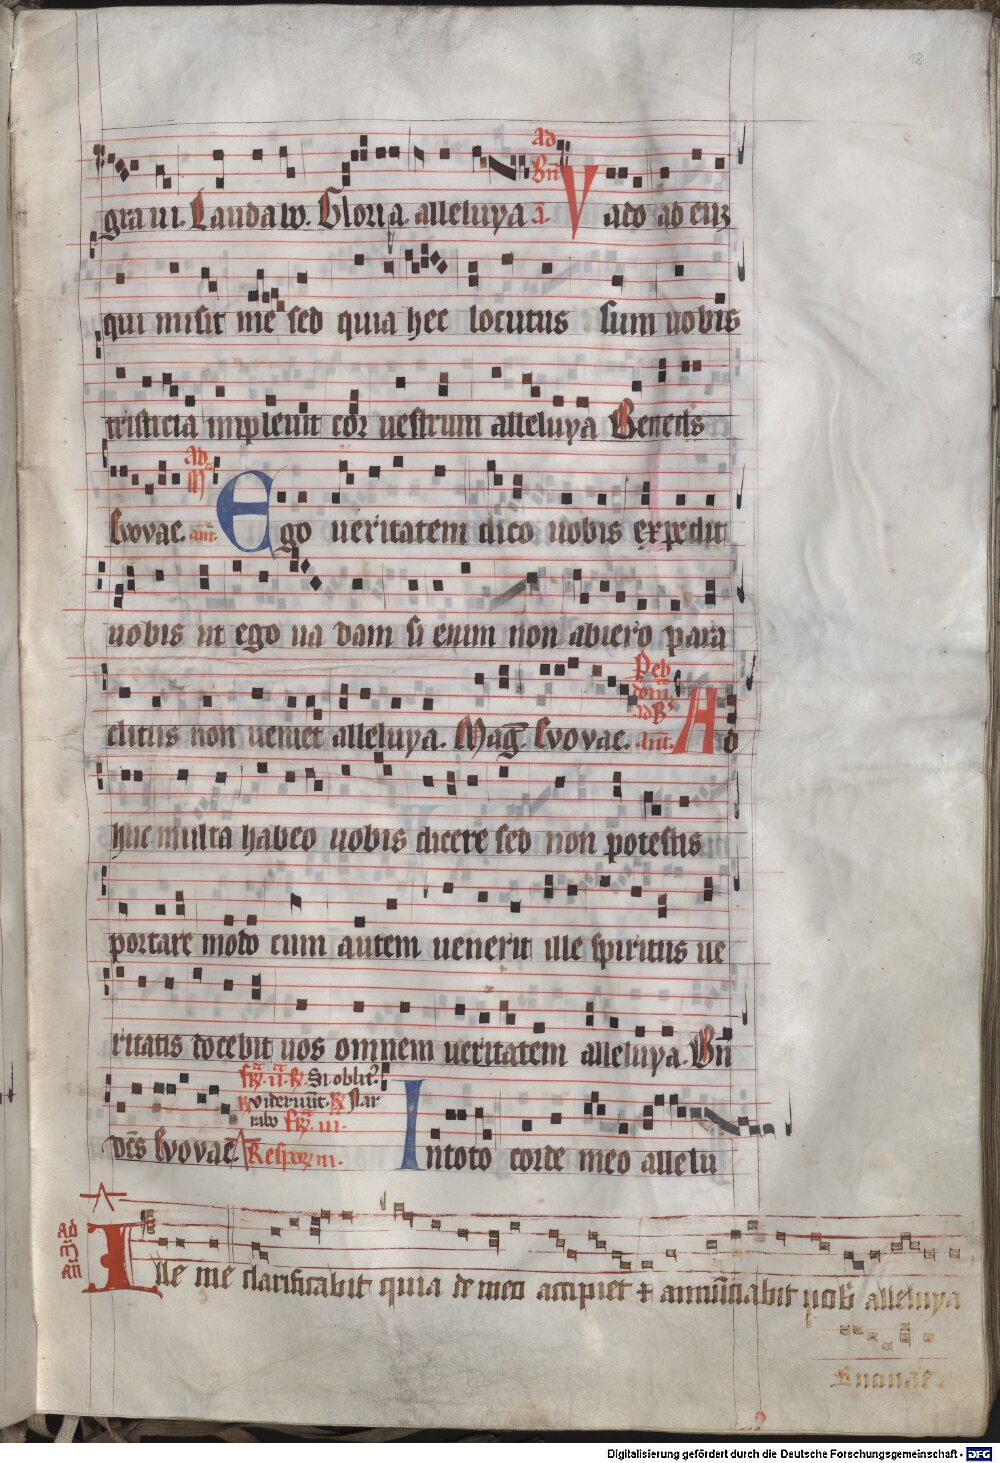 18
gra ui. Laudabo. Gloria. alleluya ad Bñ a. Vado ad euz
qui misit me sed quia hec locutus sum uobis
tristicia impleuit cor uestrum alleluya Beneds
Evovae. ad M ant. Ego ueritatem dico uobis expedit
uobis ut ego ua dam si enim non abiero para
clitus non ueniet alleluya. Mag. Evovae. ant. Ad
huc multa habeo uobis dicere sed non potestis
portare modo cum autem uenerit ille spiritus ue
ritatis docebit uos omnem ueritatem alleluya. Bñ
dcs Evovae. Respor m. In toto corde meo allelu
ad
Ille me clarificabit quia de meo accipiet & annunciabit uob alleluya
Euouae.
Digitalisierung gefördert durch die Deutsche Forschungsgemeinschaft - DFG